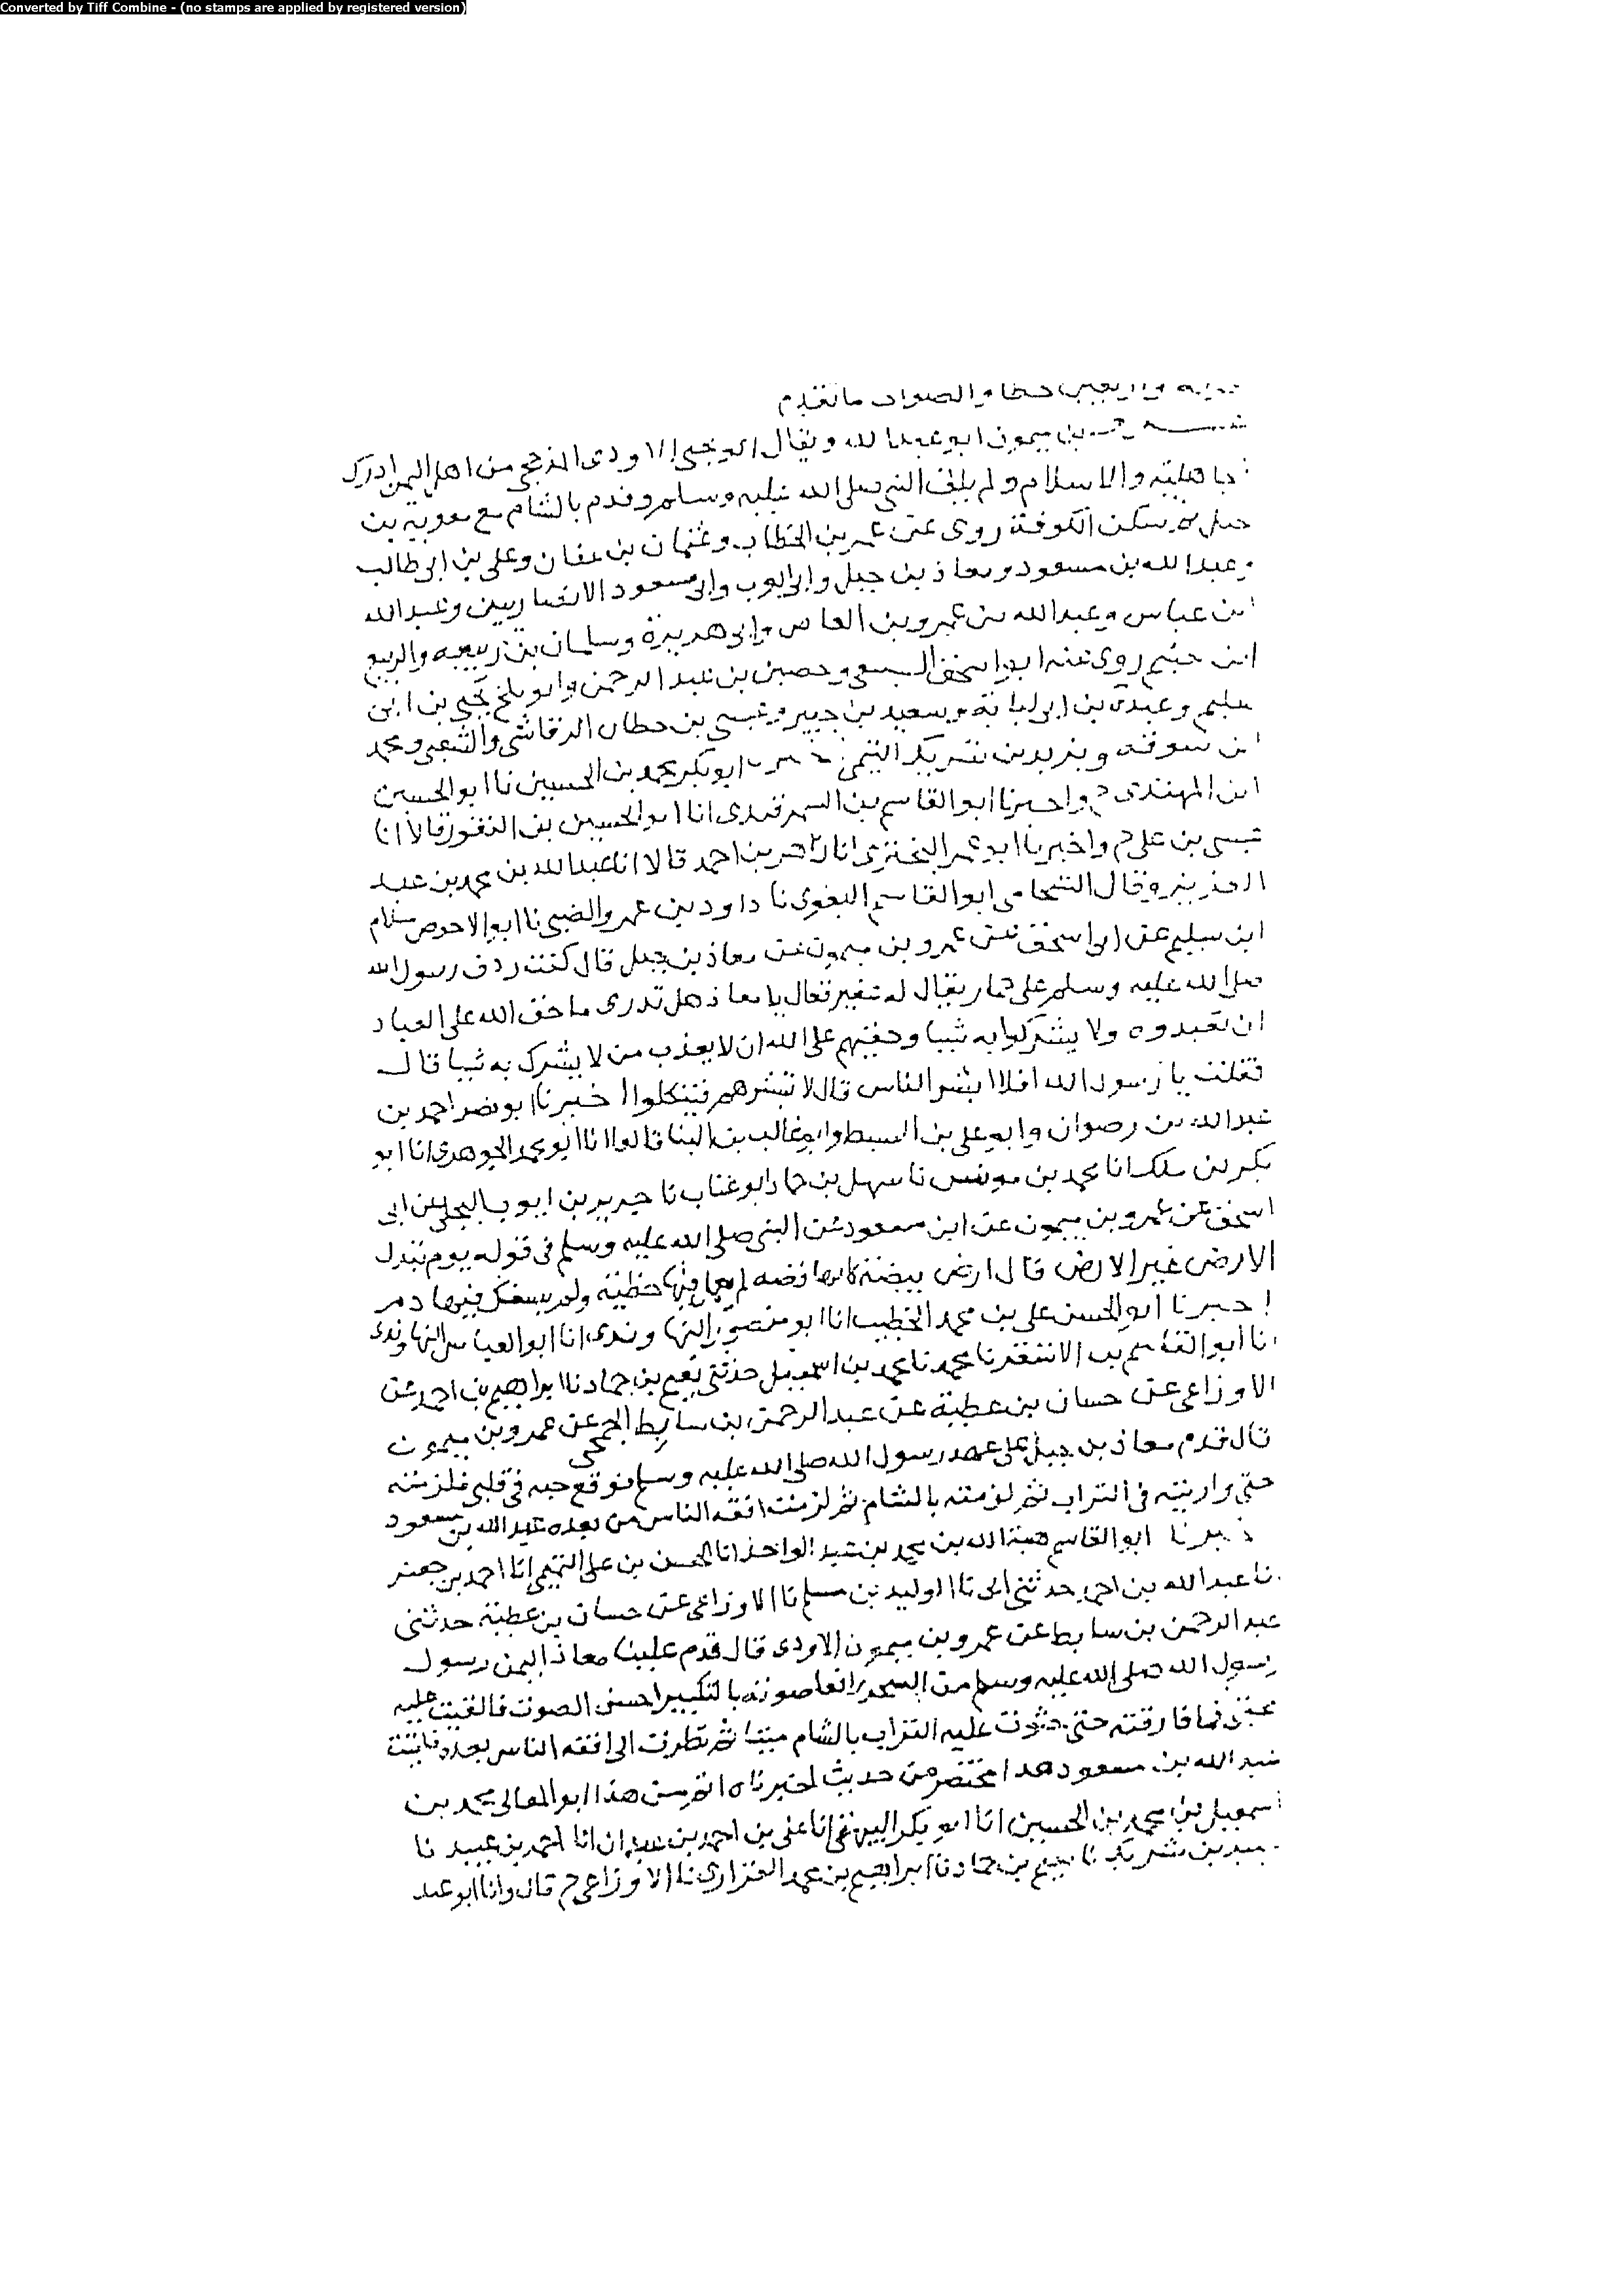 Converted by Tiff Combine - (no stamps are applied by registered version)
خطا والصواب ما تقدم
بن ميمون ابو عبد الله ويقال ابو يحيى الاودى المذحجى من اهل اليمن ادرك
جاهلية والاسلام ولم يلق النبي صلى الله عليه وسلم وقدم بالشام مع معوية بن
جبل ثم سكن الكوفة روى عن عمر بن الخطاب وعثمان بن عفان وعلي بن ابي طالب
وعبد الله بن مسعود ومعاذ بن جبل وابي ايوب وابي مسعود الانصاريين وعبد الله
ابن عباس وعبد الله بن عمرو بن العاص وابي هريرة وسلمان بن ربيعه والربيع
ابن خثيم روى عنه ابو اسحق السبيعي وحصين بن عبد الرحمن وابو بلخ يحيى بن ابي
سليم وعبدة بن ابي لبابة وسعيد بن جبير وعيسى بن حطان الرقاشى والشعبي ومحمد
ابن سوقه ويزيد بن شريك التيمى ابو بكر محمد بن الحسين نا ابو الحسين
ابن المهتدى ح واخبرنا ابو القاسم بن السمرقندى انا ابو الحسين بن النقور قالا انا
عيسى بن علي ح واخبرنا ابو عمر البختزى انا طاهر بن احمد قالا انا عبد الله بن محمد بن عبد
العزيز وقال الشحامى ابو القاسم البغوى نا داود بن عمرو الضبى نا ابو الاحوص سلام
ابن سليم عن ابي اسحق عن عمرو بن ميمون عن معاذ بن جبل قال كنت ردف رسول الله
صلى الله عليه وسلم على حمار يقال له عفير فقال يا معاذ هل تدرى ما حق الله على العباد
ان تعبدوه ولا يشركوا به شيا وحقهم على الله ان لا يعذب من لا يشرك به شيا قال
فقلت يا رسول الله افلا ابشر الناس قال لا تبشرهم فيتكلوا اخبرنا ابو نصر احمد بن
عبد الله بن رضوان وابو علي بن السبط وابو غالب بن البنا قالوا انا ابو محمد الجوهرى انا ابو
بكر بن ملك انا محمد بن يونس نا سهل بن حماد ابو عتاب نا جرير بن ايوب البجلى عن ابي
اسحق عن عمرو بن ميمون عن ابن مسعود عن النبى صلى الله عليه وسلم فى قوله يوم تبدل
الارض غير الارض قال ارض بيضة كانها فضه لم يعمل فيها خطية ولم يسفك فيها دم
اخبرنا ابو الحسن علي بن محمد الخطيب انا ابو منصور النهاوندى انا ابو العباس النهاوندى
انا ابو القاسم بن الاشقر نا محمد نا محمد بن اسمعيل حدثنى نعيم بن حماد نا ابراهيم بن احمد عن
الاوزاعى عن حسان بن عطية عن عبد الرحمن بن سابط الجمحى عن عمرو بن ميمون
قال قدم معاذ بن جبل على عهد رسول الله صلى الله عليه وسلم فوقع حبه فى قلبى فلزمته
حتى واريته فى التراب ثم لزمته بالشام ثم لزمت افقه الناس من بعده عبد الله بن مسعود
اخبرنا ابو القاسم هبة الله بن محمد بن عبد الواحد انا الحسن بن على التميمى انا احمد بن جعفر
نا عبد الله بن احمد حدثنى ابى نا الوليد بن مسلم نا الاوزاعى عن حسان بن عطية حدثنى
عبد الرحمن بن سابط عن عمرو بن ميمون الاودى قال قدم علينا معاذ اليمن رسول
رسول الله صلى الله عليه وسلم من السحر رافعا صوته بالتكبير احسن الصوت فالقيت عليه
محبتى فما فارقته حتى حثوت عليه التراب بالشام ميتا ثم نظرت الى افقه الناس بعده فاتيت
عبد الله بن مسعود هذا مختصر من حديث اخبرناه اتم من هذا ابو المعالى محمد بن
اسمعيل بن محمد بن الحسين انا ابو بكر البيهقى انا على بن احمد بن عبدان انا احمد بن عبيد نا
عبيد بن شريك نا نعيم بن حماد نا ابراهيم بن محمد الفزارى نا الاوزاعى ح قال وانا ابو عبد